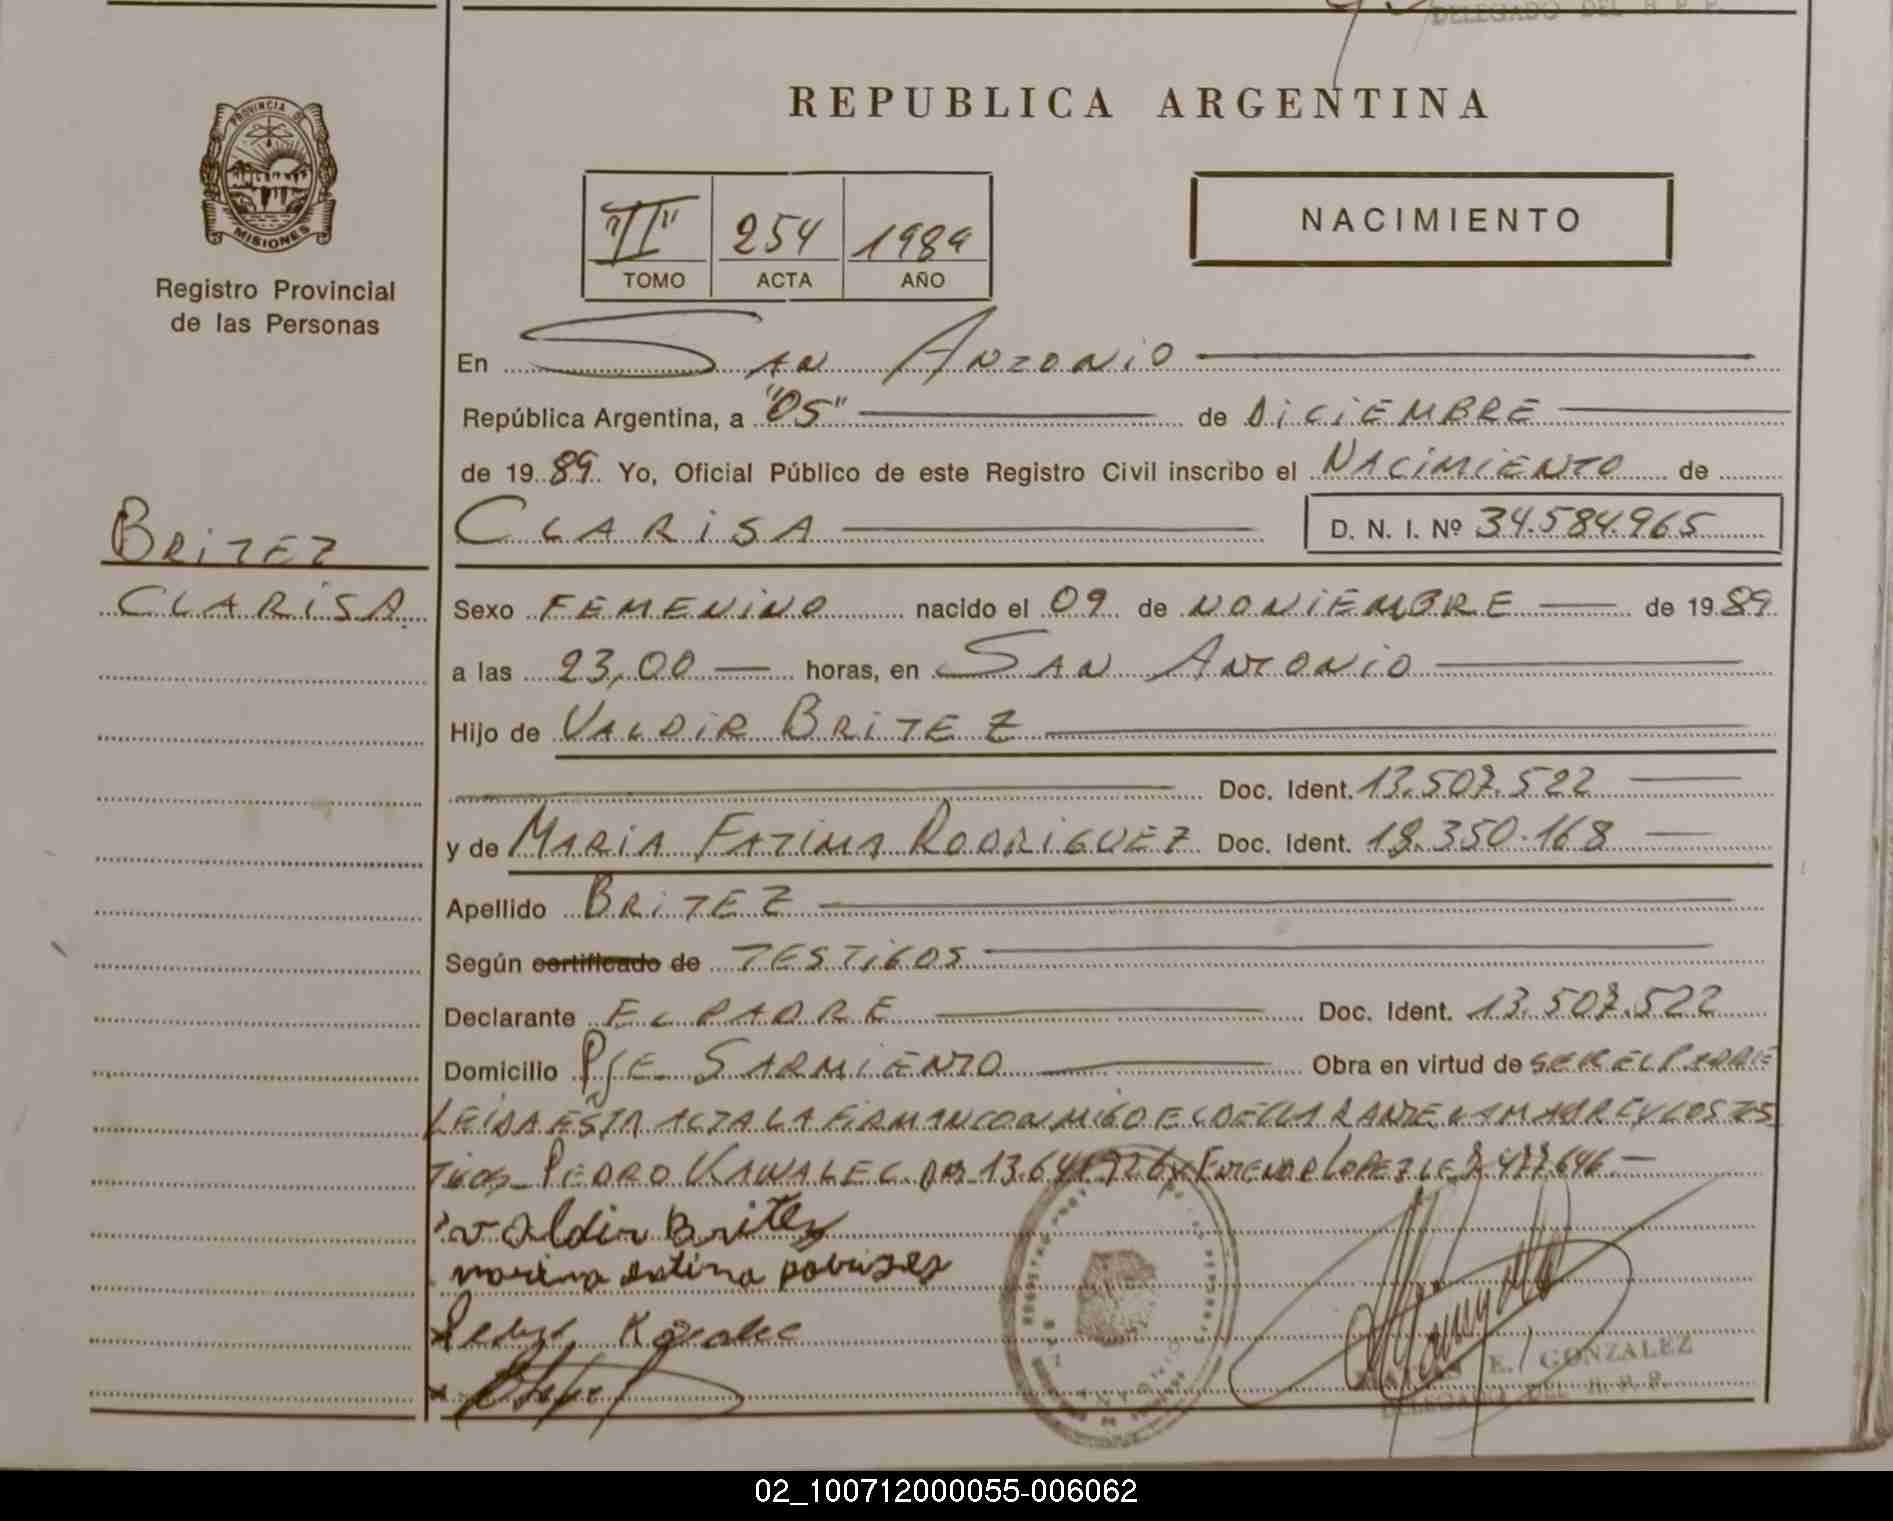 DELEGADO DEL R. P. P.
REPUBLICA ARGENTINA
PROVINCIA DE
MISIONES
Registro Provincial
de las Personas
"II" 254 1989
TOMO ACTA AÑO
NACIMIENTO
En SAN ANTONIO
República Argentina, a "05" de DICIEMBRE
de 1989 Yo, Oficial Público de este Registro Civil inscribo el NACIMIENTO de
BRITEZ
CLARISA
CLARISA D. N. I. Nº 34.584.965
Sexo FEMENINO nacido el 09 de NOVIEMBRE de 1989
a las 23,00 horas, en SAN ANTONIO
Hijo de VALDIR BRITEZ
Doc. Ident. 13.507.522
y de MARIA FATIMA RODRIGUEZ Doc. Ident. 18.350.168
Apellido BRITEZ
Según certificado de TESTIGOS
Declarante EL PADRE Doc. Ident. 13.507.522
Domicilio PJE. SARMIENTO Obra en virtud de SER EL PADRE
LEIDA ESTA ACTA LA FIRMAN CONMIGO EL DECLARANTE LA MADRE Y LOS TES
TIGOS PEDRO KAWALEC 13.641.726 Y LOPEZ LE
Valdir Britez
E. GONZALEZ
DELEGADA DEL R. P. P.
02_100712000055-006062